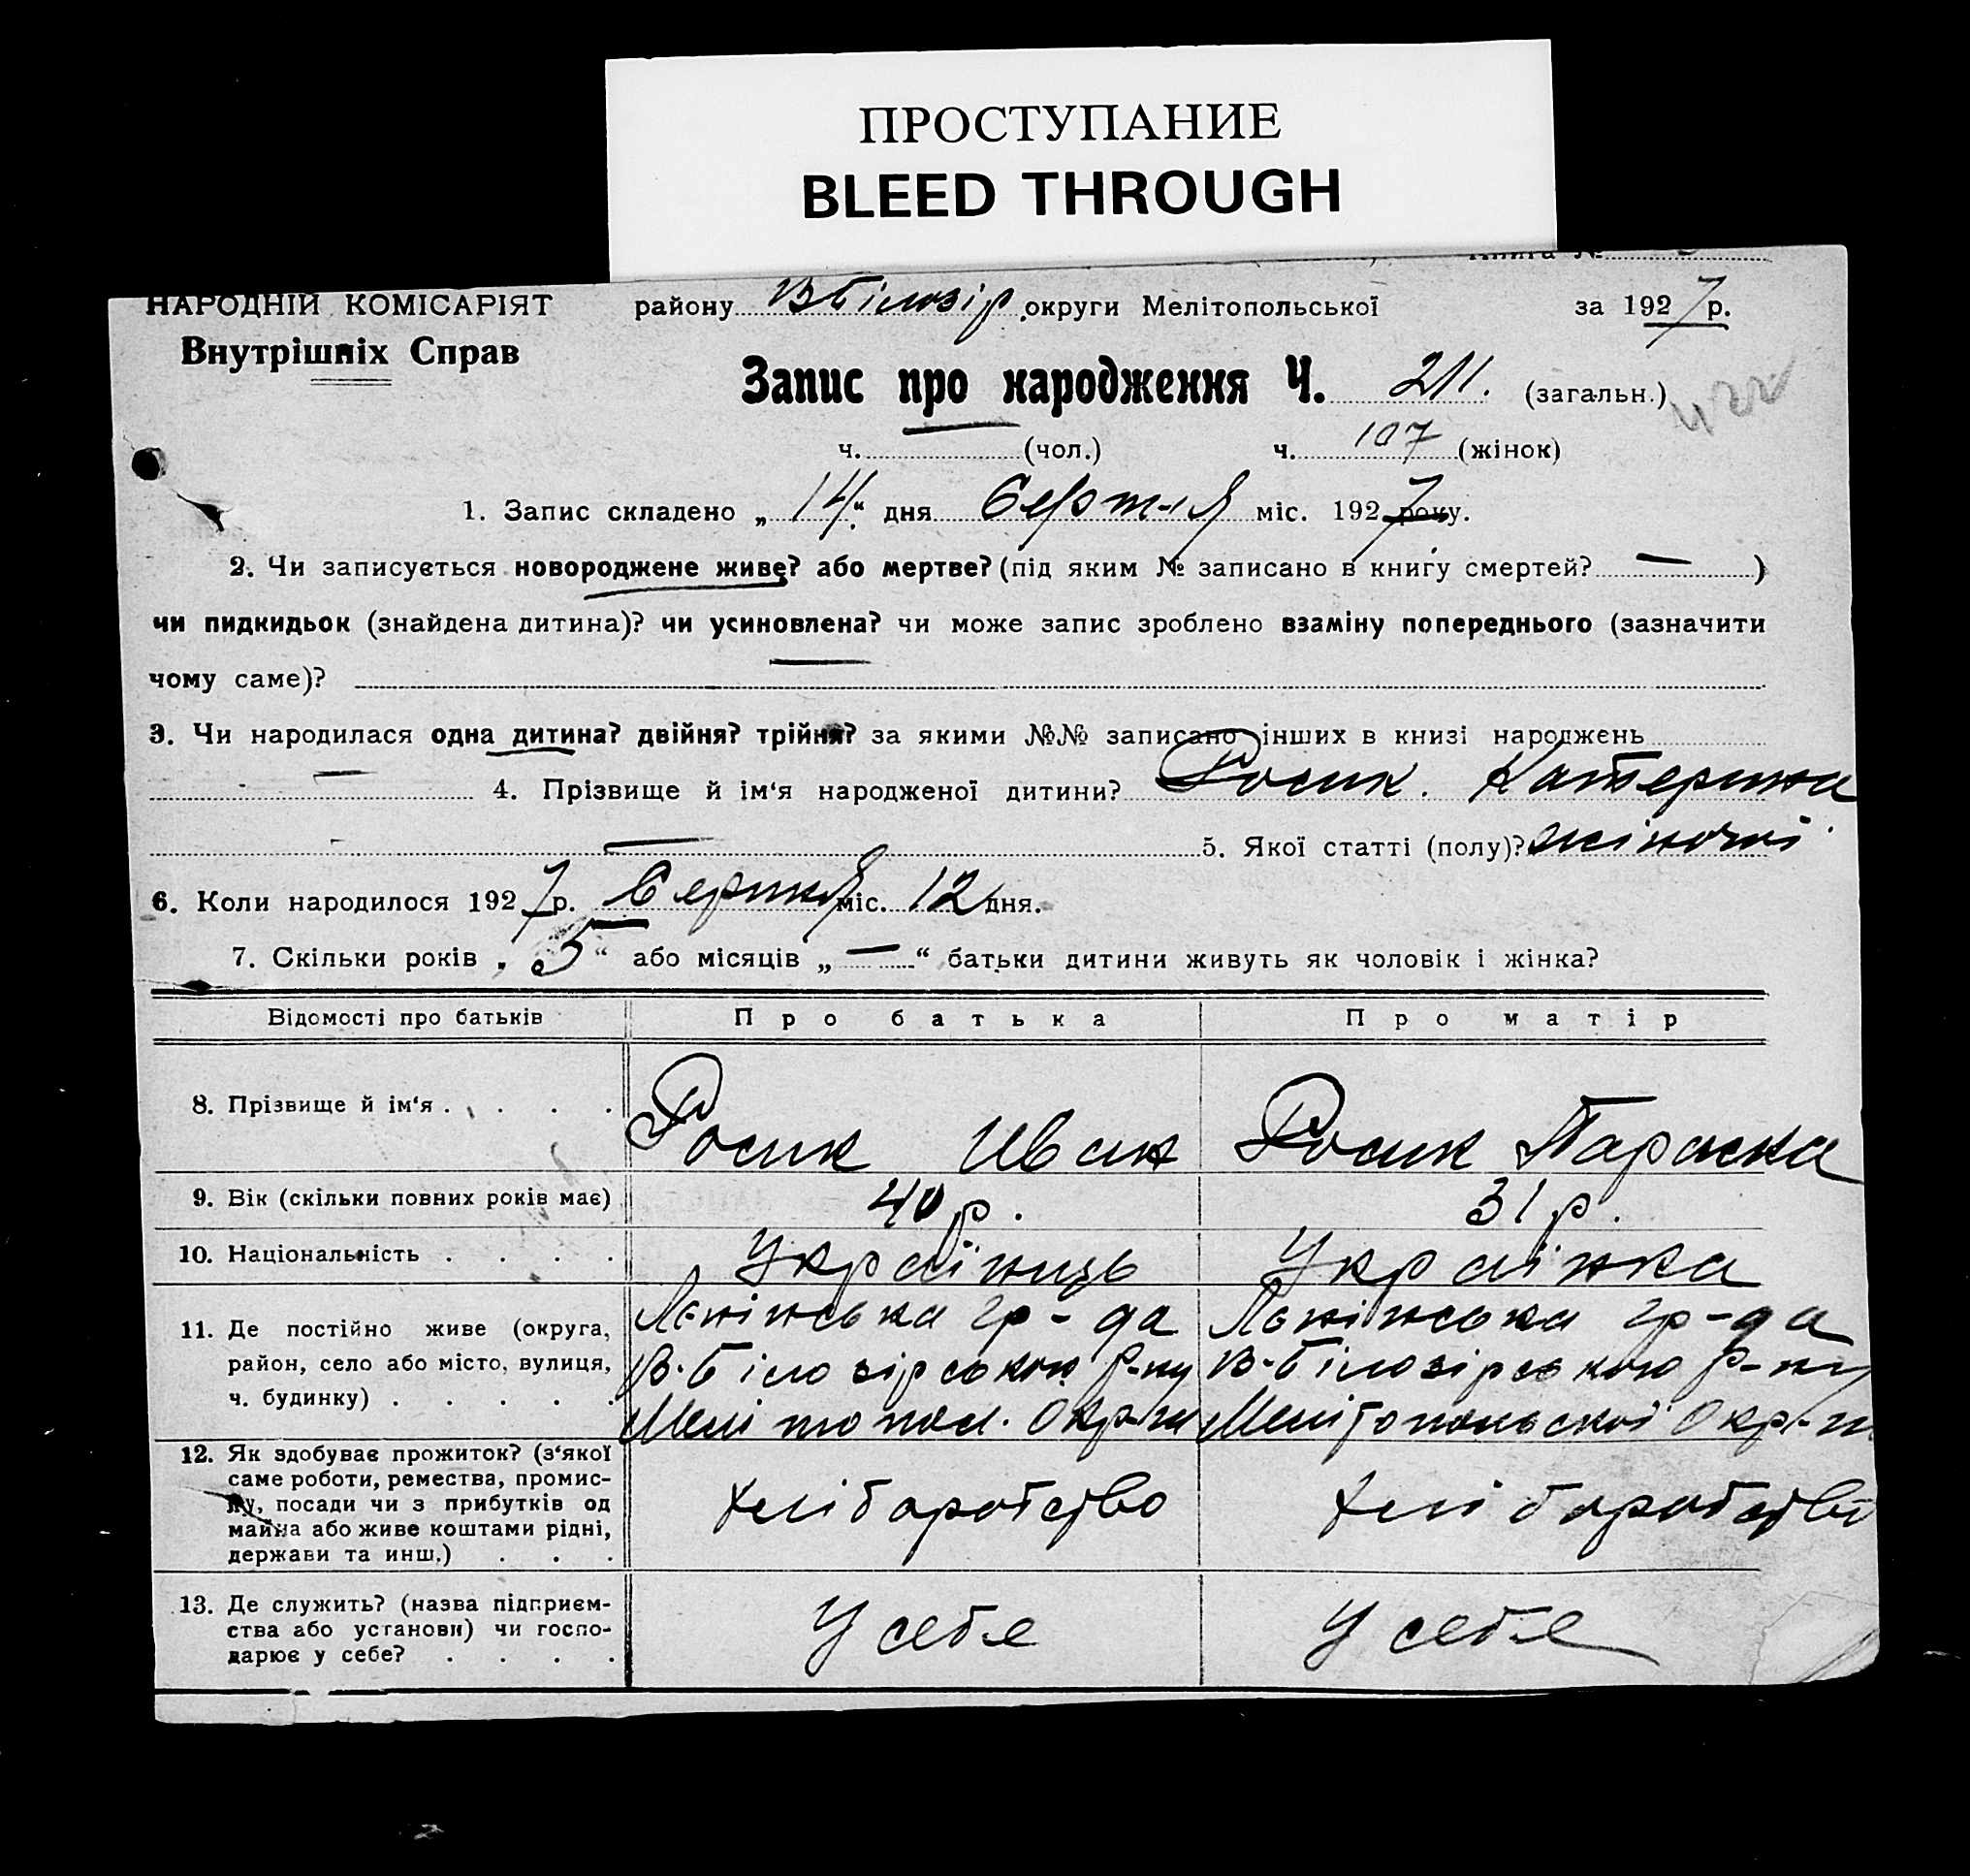 ПРОСТУПАНИЕ
BLEED THROUGH
Книга №
НАРОДНІЙ КОМІСАРІЯТ району В Білозір. округи Мелітопольської за 1927 р.
Внутрішніх Справ
Запис про народження Ч. 211. (загальн.)
ч. (чол.) ч. 107 (жінок)
1. Запис складено „ 14 “ дня Серпня міс. 1927 року.
2. Чи записується новороджене живе? або мертве? (під яким № записано в книгу смертей? — )
чи пидкидьок (знайдена дитина)? чи усиновлена? чи може запис зроблено взаміну попереднього (зазначити
чому саме)? —
3. Чи народилася одна дитина? двійня? трійня? за якими №№ записано інших в книзі народжень
— 4. Прізвище й ім‘я народженої дитини? Росик. Катерина
— 5. Якої статті (полу)? жіночої
6. Коли народилося 1927 р. Серпня міс. 12 дня.
7. Скільки років „ 5 “ або місяців „ — “ батьки дитини живуть як чоловік і жінка?
Відомості про батьків Про батька Про матір
8. Прізвище й ім‘я . . . . . Росик Иван Росик Параска
9. Вік (скільки повних років має) 40 р. 31 р.
10. Національність . . . . Українць Українка
11. Де постійно живе (округа, Ленінська гр-да Ленінська гр-да
район, село або місто, вулиця, В-Білозірського Р-ну В-Білозірського Р-ну
ч. будинку) . . . . . Мелітопол. Окр-ги Мелітопольскоі Окр-ги
12. Як здобуває прожиток? (з‘якої
саме роботи, ремества, промис-
лу, посади чи з прибутків од Хліборобство Хліборобство
майна або живе коштами рідні,
держави та инш.) . . .
13. Де служить? (назва підприєм-
ства або установи) чи госпо- У себе У себе
дарює у себе? . . . .